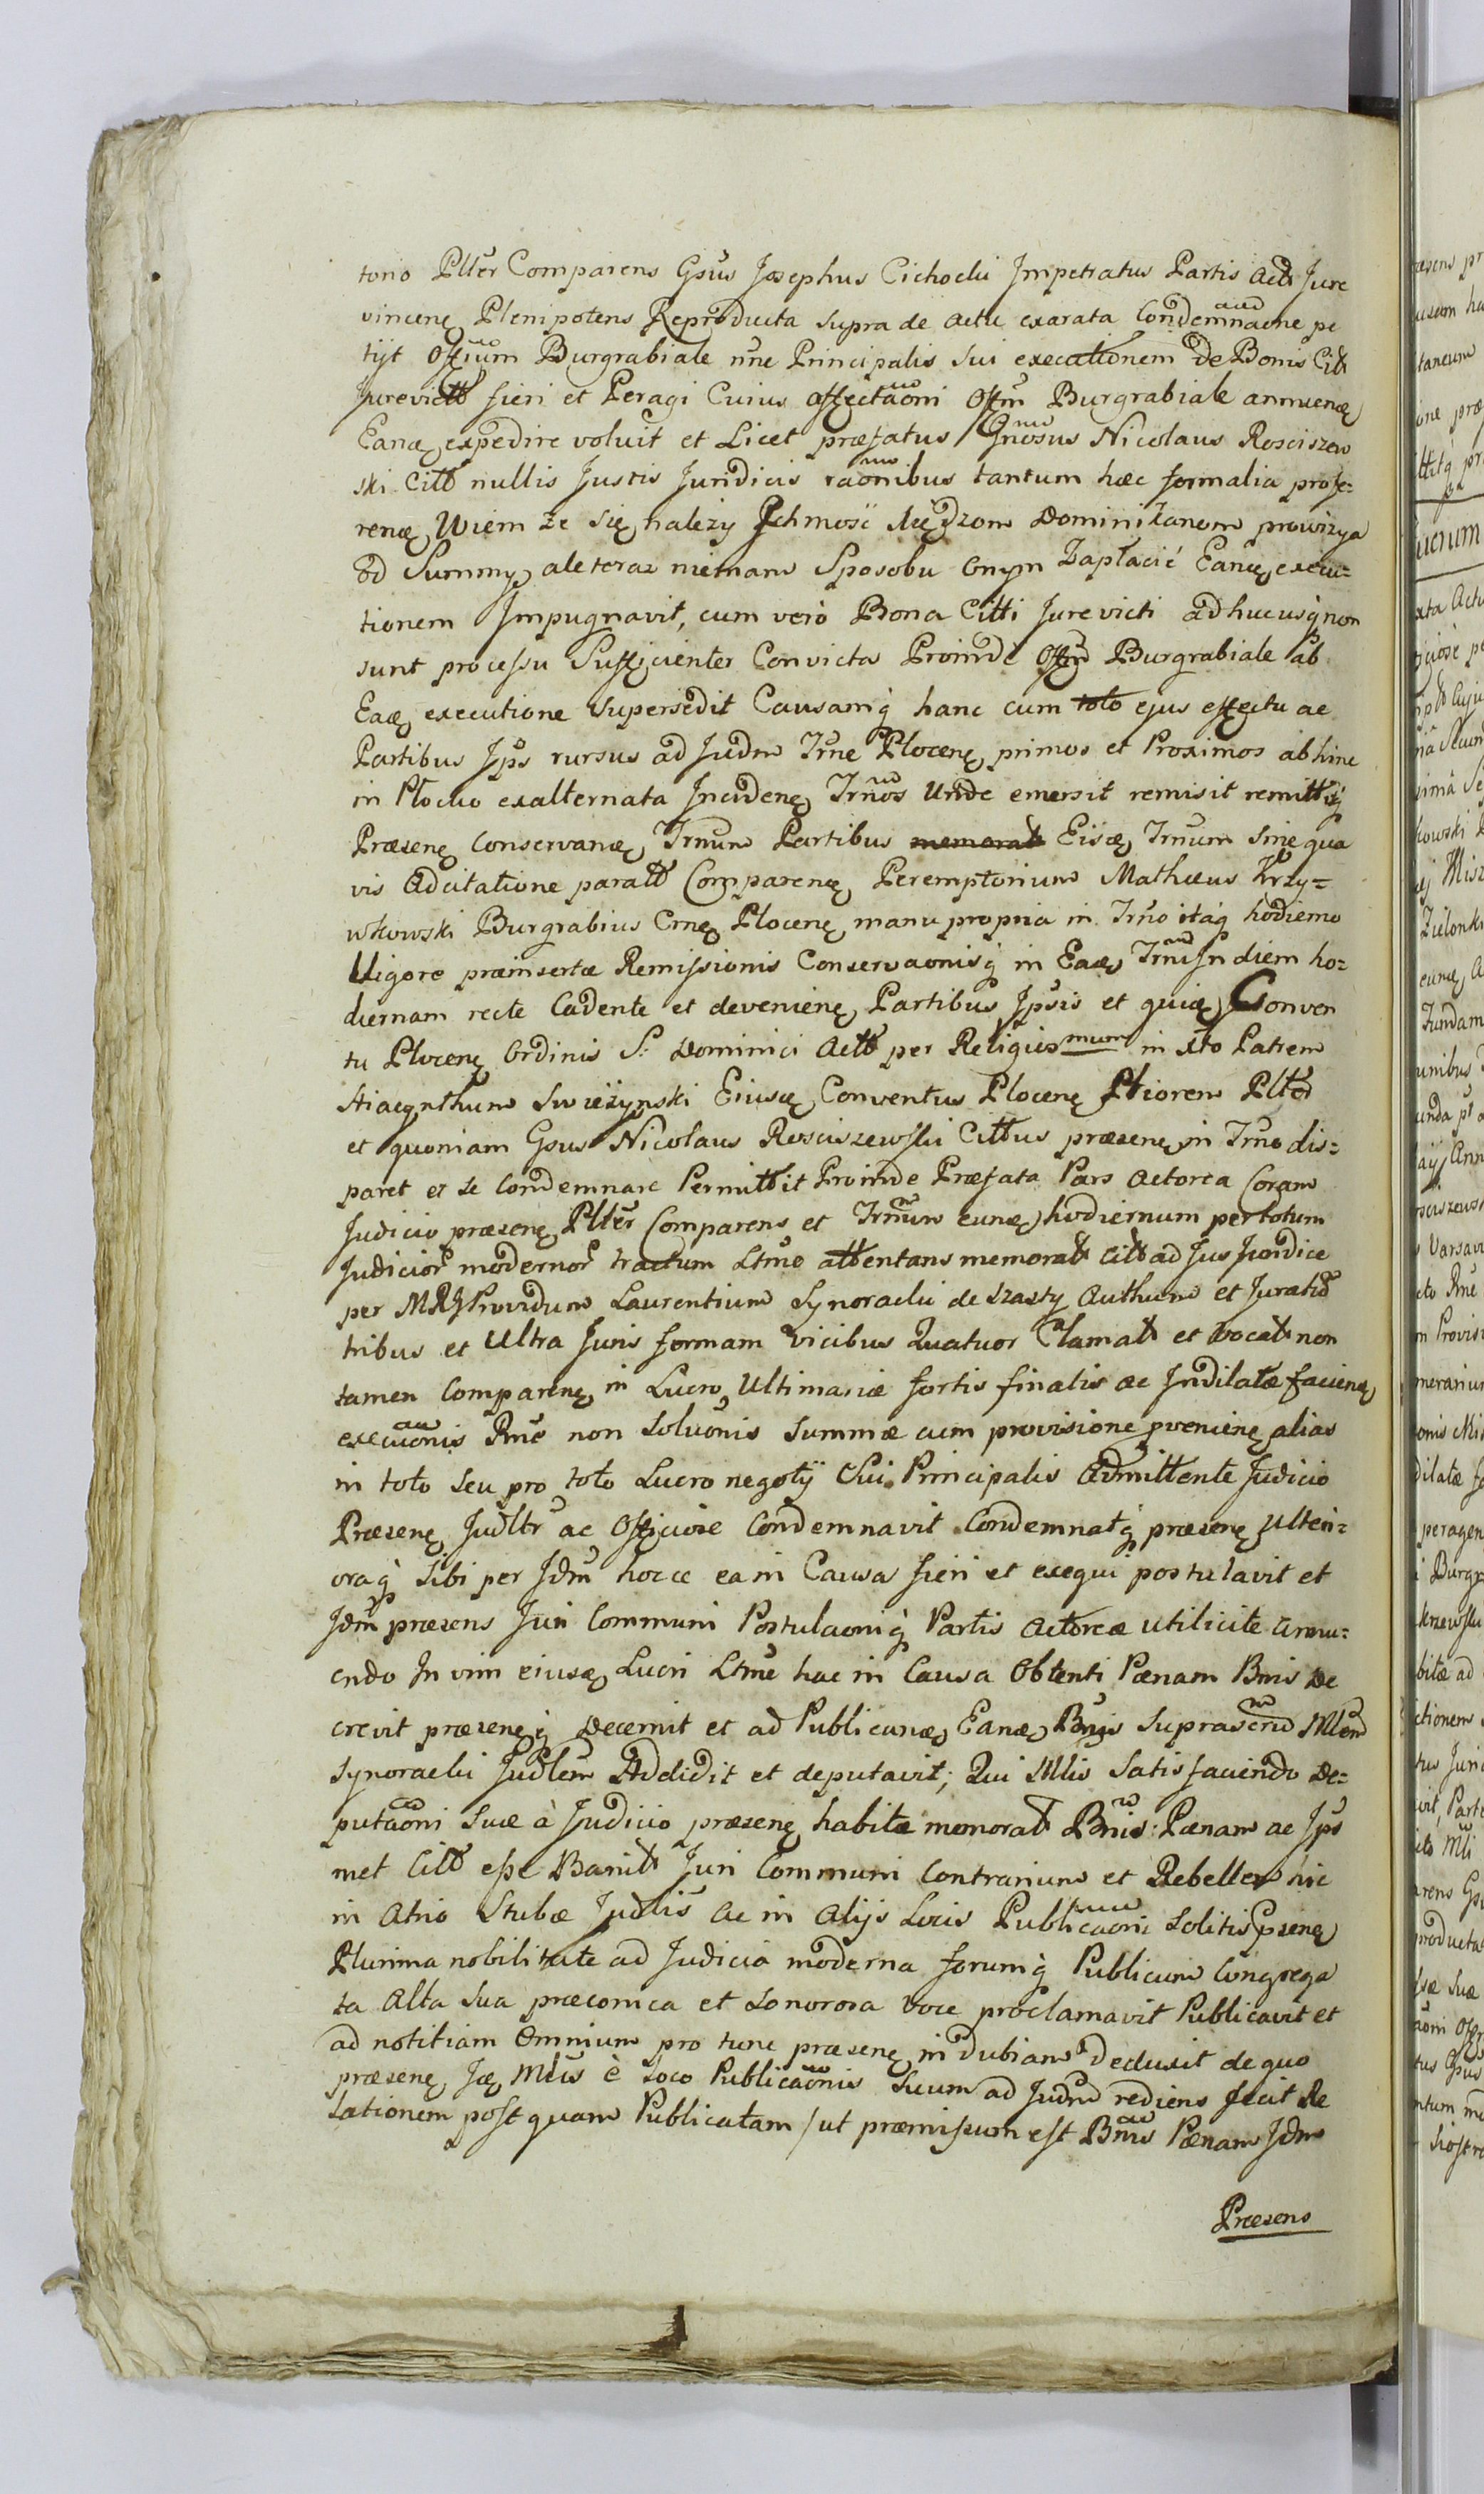 torio Plłer Comparens Gsus Josephus Cichocki Impetratus Partis Act Jure
vincenꝫ Plenipotens Reproducta supra de actu exarata Condemnaone pe
tijt Offium Burgrabiale nne Principalis sui executionem de Bonis Citt
Jurevictt fieri et Peragi Cuius affectaoni Offm Burgrabiale annuenꝫ
Eanꝫ expedire voluit et Licet præfatus Gnosus Nicolaus Rosciszew
ski Citt nullis Justis Juridicis raonibus tantum hæc formalia profe=
renꝫ Wiem ze się nalezy Jchmość Xiędzom Dominikanom prowizya
od Summy, ale teraz niemam Sposobu onym Zapłacić Eanꝫ execu=
tionem Impugnavit, cum verò Bona Citti Jurevicti adhucusq non
sunt processu Sufficienter Convicta Proinde Offm Burgrabiale ab
Eaꝫ executione Supersedit Causamq hanc cum toto ejus effectu ac
Partibus Jps rursus ad Judm Trne Plocenꝫ primos et Proximos abhinc
in Plocko exalternata Incidenꝫ Trnos Unde emersit remisit remittitq
Præsenꝫ Conservanꝫ Trnum Partibus Eisꝫ Trnum Sine qua
vis Adcitatione paratt Comparenꝫ Peremptorium Mathæus Krzy=
wkowski Burgrabius Crnꝫ Plocenꝫ manu propria in Trno itaq hodierno
Vigore præinsertæ Remissionis Conservaonisq in Eaꝫ Trni In diem ho=
diernam recte Cadente et devenienꝫ Partibus Ipsis et quiꝫ Conven
tu Plocenꝫ Ordinis S: Dominici Actt per Religiosmum in Xto Patrem
Hiacynthum Swieżynski Eiusꝫ Conventus Plocenꝫ Priorem Plłer
et quoniam Gsus Nicolaus Rosciszewski Cittus præsenꝫ in Trno dis=
paret et se Condemnare Permittit Proinde Præfata Pars Actorea Coram
Judicio præsenꝫ Plłer Comparens et Trnum eunꝫ hodiernum per totum
Judicior modernor tractum Ltme attentans memoratt Citt ad Jus Juridice
per MRJ Providum Laurentium Synoracki de Szasty Authum et Juratū
tribus et Ultra Juris formam vicibus Quatuor Clamatt et vocatt non
tamen Comparenꝫ in Lucro Ultimariæ fortis finalis ac Indilatæ facienꝫ
execuonis Rne non Soluonis Summæ cum provisione pvenienꝫ alias
in toto seu pro toto Lucro negotij Sui Principalis Admittente Judicio
Præsenꝫ Judltr ac Officiose Condemnavit Condemnatq præsenꝫ Ulteri=
oraq sibi per Jdm hocce ea in Causa fieri et exequi postulavit et
Jdm præsens Juri Communi Postulaoniq Partis Actoreæ utilicite annu=
endo In vim eiusꝫ Lucri Ltme hac in Causa Obtenti Pænam Bnis De
crevit præsenꝫq Decernit et ad Publicanꝫ Eanꝫ Bnis Suprascrū Mlem
Synoracki Judlem Addidit et deputavit; Qui Mlis Satisfaciendo De=
putaoni Suæ à Judicio præsenꝫ habitæ memoratt Bnis: Pænam ac Jps
met Citt esse Banitt Juri Communi Contrarium et Rebellem hic
in Atrio Stubæ Judlis ac in Alijs Locis Publicaoni Solitis Psenꝫ
Plurima nobilitate ad Judicia moderna forumq Publicum Congrega
ta Alta Sua præconica et Sonorosa voce proclamavit Publicavit et
ad notitiam Omnium pro tunc præsenꝫ indubiam deduxit de quo
præsenꝫ Jꝫ Mlis è Loco Publicaonis Suum ad Judm rediens fecit Re
lationem postquam Publicatam /ut præmissum est Bnis Pænam Jdm
Præsens